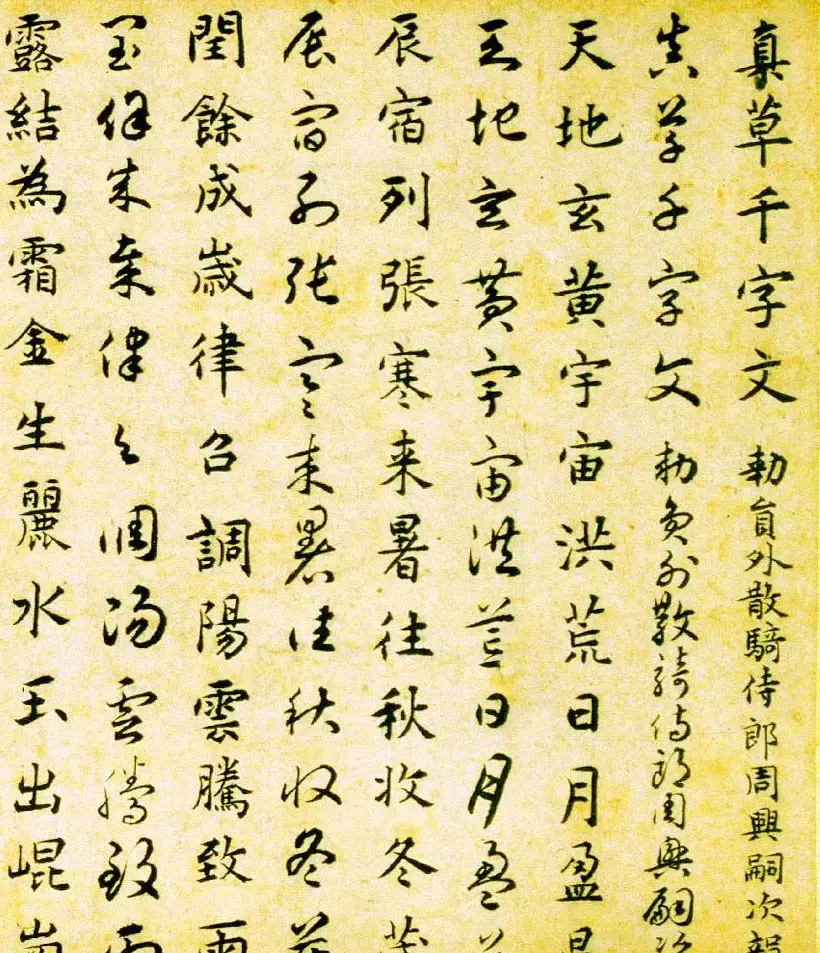 真草千字文 勅員外散騎侍郎周興嗣次
真草千字文 勅員外散騎侍郎周興嗣次
天地玄黄宇宙洪荒日月盈
天地玄黄宇宙洪荒日月盈
辰宿列張寒来暑往秋收冬
辰宿列張寒来暑往秋收冬
閏餘成歲律召調陽雲騰致雨
閏餘成歲律召調陽雲騰致雨
露結為霜金生麗水玉出崐